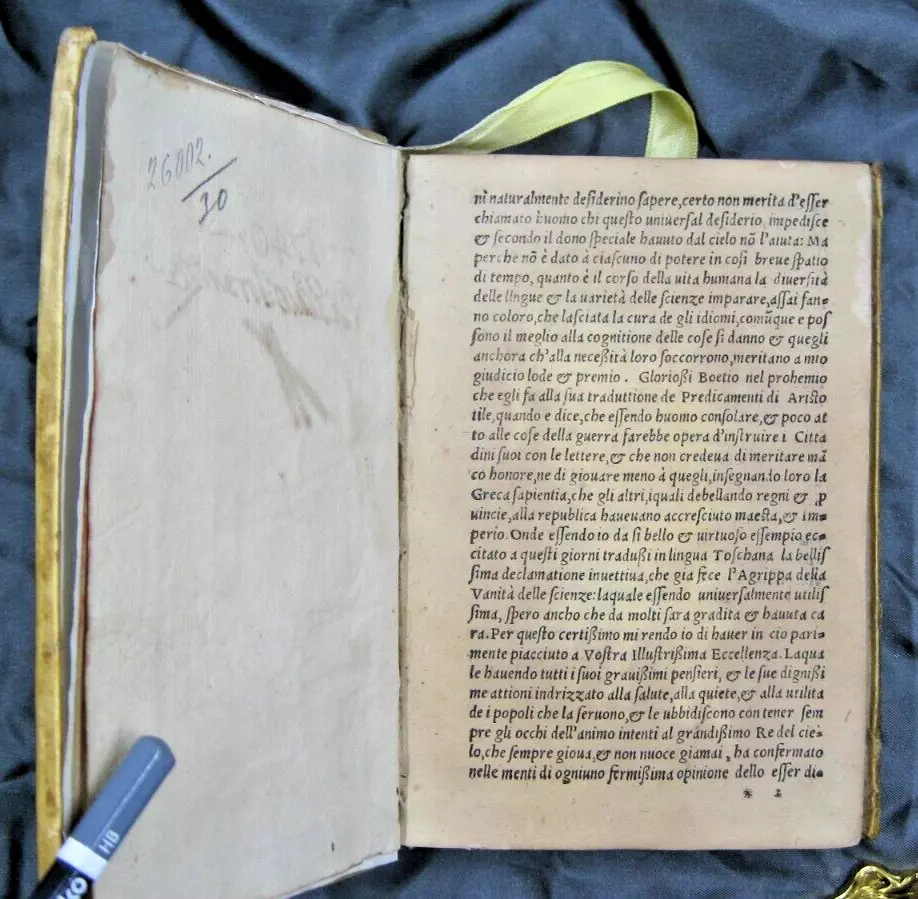 26002.
30
nì naturalmente desiderino sapere,certo non merita d'esser
chiamato huomo chi questo uniuersal desiderio impedisce
& secondo il dono speciale hauuto dal cielo nõ l'aiuta: Ma
perche nõ è dato à ciascuno di potere in cosi breue spatio
di tempo, quanto è il corso della uita humana la diuersità
delle lingue & la uarietà delle scienze imparare,assai fan-
no coloro,che lasciata la cura de gli idiomi,comũque e pos
sono il meglio alla cognitione delle cose si danno & quegli
anchora ch'alla necessità loro soccorrono,meritano a mio
giudicio lode & premio . Gloriossi Boetio nel prohemio
che egli fa alla sua traduttione de Predicamenti di Aristo
tile,quando e dice,che essendo huomo consolare,& poco at
to alle cose della guerra farebbe opera d'instruire i Citta
dini suoi con le lettere,& che non credeua di meritare mã
co honore,ne di giouare meno à quegli,insegnando loro la
Greca sapientia,che gli altri,iquali debellando regni & ,p
uincie,alla republica haueuano accresciuto maesta,& im-
perio. Onde essendo io da si bello & uirtuoso essempio ec-
citato a questi giorni tradussi in lingua Toschana la bellis
sima declamatione inuettiua,che gia fece l'Agrippa della
Vanità delle scienze:laquale essendo uniuersalmente utilis
sima, spero ancho che da molti sara gradita & hauuta ca
ra. Per questo certissimo mi rendo io di hauer in cio pari-
mente piacciuto a Vostra Illustrissima Eccellenza. Laqua
le hauendo tutti i suoi grauissimi pensieri, & le sue dignissi
me attioni indrizzato alla salute,alla quiete,& alla utilita
de i popoli che la seruono,& le ubbidiscono con tener sem
pre gli occhi dell'animo intenti al grandissimo Re del cie-
lo,che sempre gioua,& non nuoce giamai , ha confermato
nelle menti di ogniuno fermissima opinione dello esser di-
* 2
HB